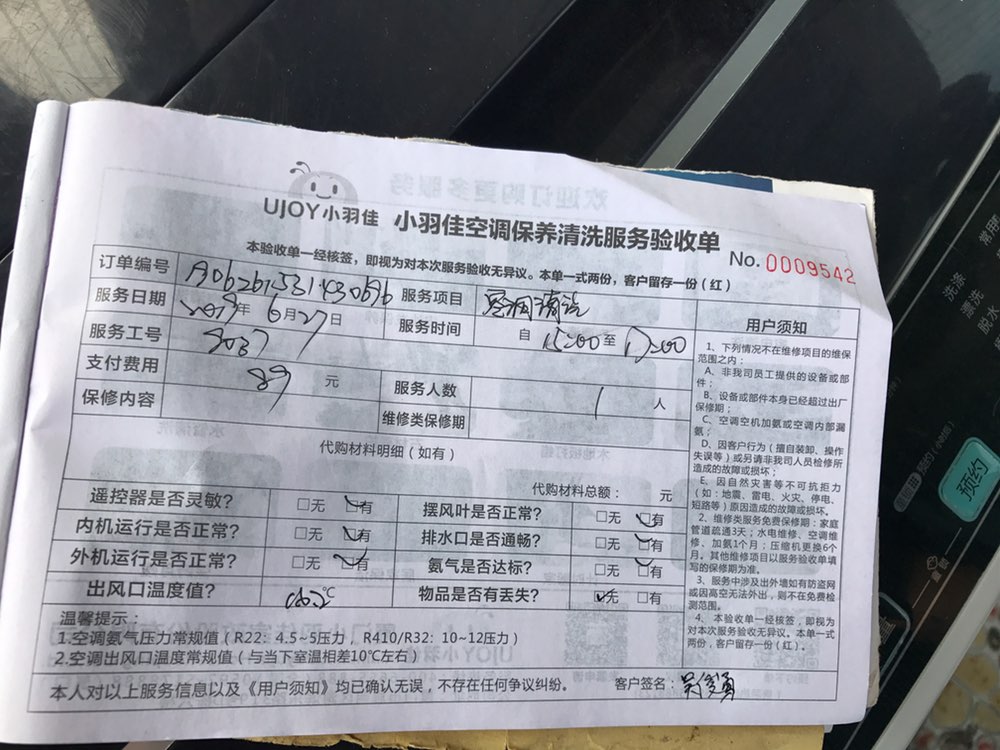 UJOY小羽佳 小羽佳空调保养清洗服务验收单
No. 0009542
本验收单一经核签，即视为对本次服务验收无异议。本单一式两份，客户留存一份（红）
订单编号 服务项目 空调清洗
服务日期 2019年 6月27日 服务时间 自 15:00 至 17:00
服务工号 8037
支付费用 89 元 服务人数 1 人
保修内容 维修类保修期
代购材料明细（如有）
代购材料总额： 元
遥控器是否灵敏？ □无 □有 摆风叶是否正常？ □无 □有
内机运行是否正常？ □无 □有 排水口是否通畅？ □无 □有
外机运行是否正常？ □无 □有 氨气是否达标？ □无 □有
出风口温度值？ ℃ 物品是否有丢失？ □无 □有
温馨提示：
1.空调氨气压力常规值（R22：4.5~5压力，R410/R32：10~12压力）
2.空调出风口温度常规值（与当下室温相差10℃左右）
本人对以上服务信息以及《用户须知》均已确认无误，不存在任何争议纠纷。 客户签名：吴俊勇
用户须知
1、下列情况不在维修项目的维保
范围之内：
A、非我司员工提供的设备或部
件；
B、设备或部件本身已经超过出厂
保修期；
C、空调空机加氨或空调内部漏
氨；
D、因客户行为（擅自装卸、操作
失误等）或另请非我司人员检修所
造成的故障或损坏；
E、因自然灾害等不可抗拒力
（如：地震、雷电、火灾、停电、
短路等）原因造成的故障或损坏。
2、维修类服务免费保修期：家庭
管道疏通3天；水电维修、空调维
修、加氨1个月；压缩机更换6个
月。其他维修项目以服务验收单填
写的保修期为准。
3、服务中涉及出外墙如有防盗网
或因高空无法外出，则不在免费检
测范围。
4、本单一经核签，即视为
对本次服务验收无异议。本单一式
两份，客户留存一份（红）。
预约
洗涤
漂洗
脱水